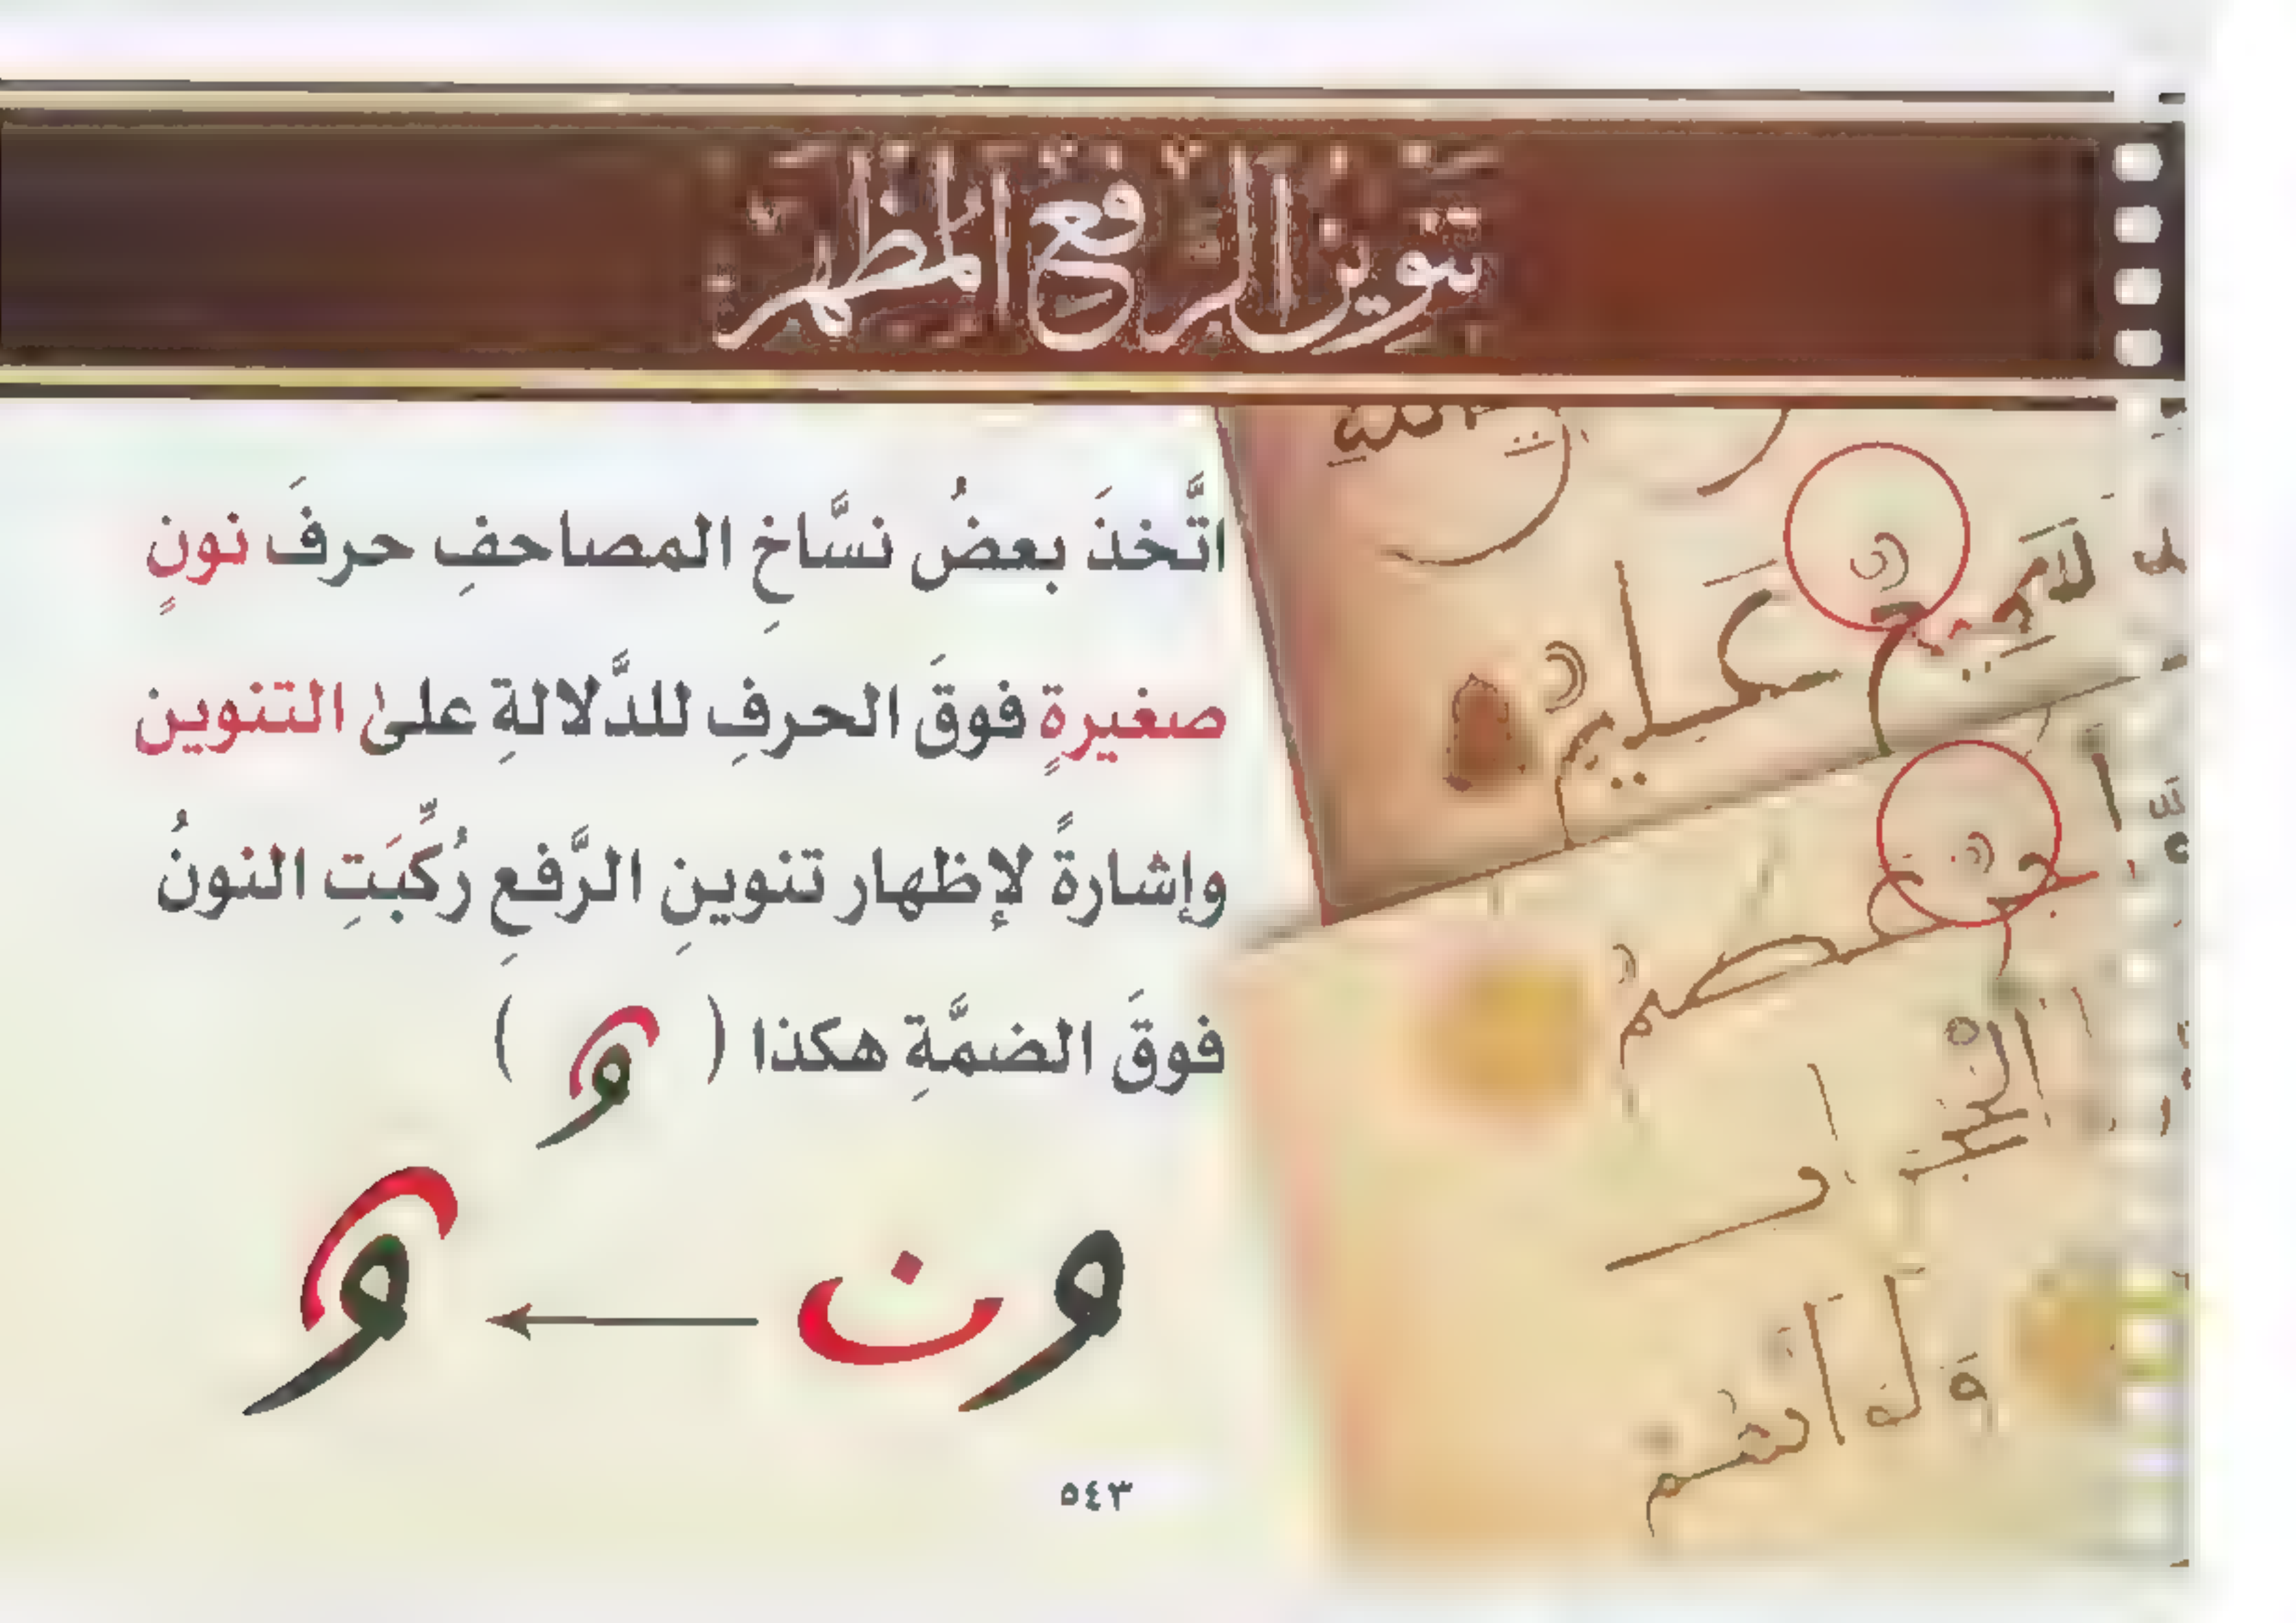 تنوين الرفع المظهر
اتَّخذَ بعضُ نسَّاخِ المصاحفِ حرفَ نونٍ
صغيرةٍ فوقَ الحرفِ للدَّلالةِ علىٰ التنوين
وإشارةً لإظهار تنوينِ الرَّفعِ رُكِّبَتِ النونُ
فوقَ الضمَّةِ هكذا ( و )
و ن ← و
٥٤٣
سميع عليم